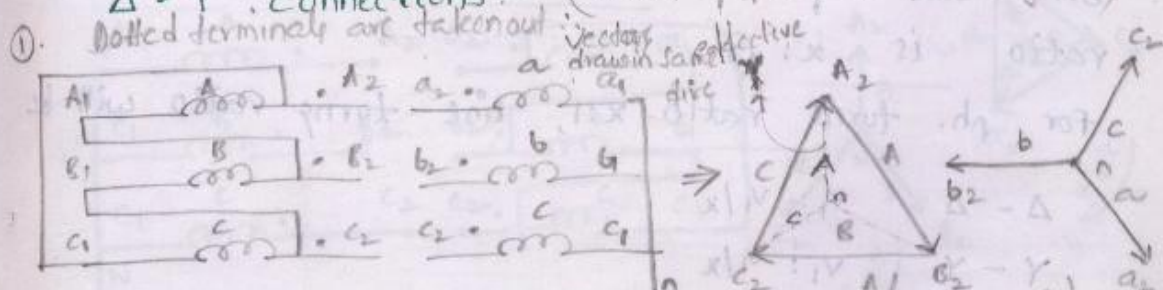 Δ - Y. Connections
①. Dotted terminals are taken out vectors
drawn in same
dirc
A1 A A2 a2 a a1
B1 B B2 b2 b
C1 C C2 c2 c c1
⇒
A2 C A A n c B C2 B2
c2 c b n b2 a a2